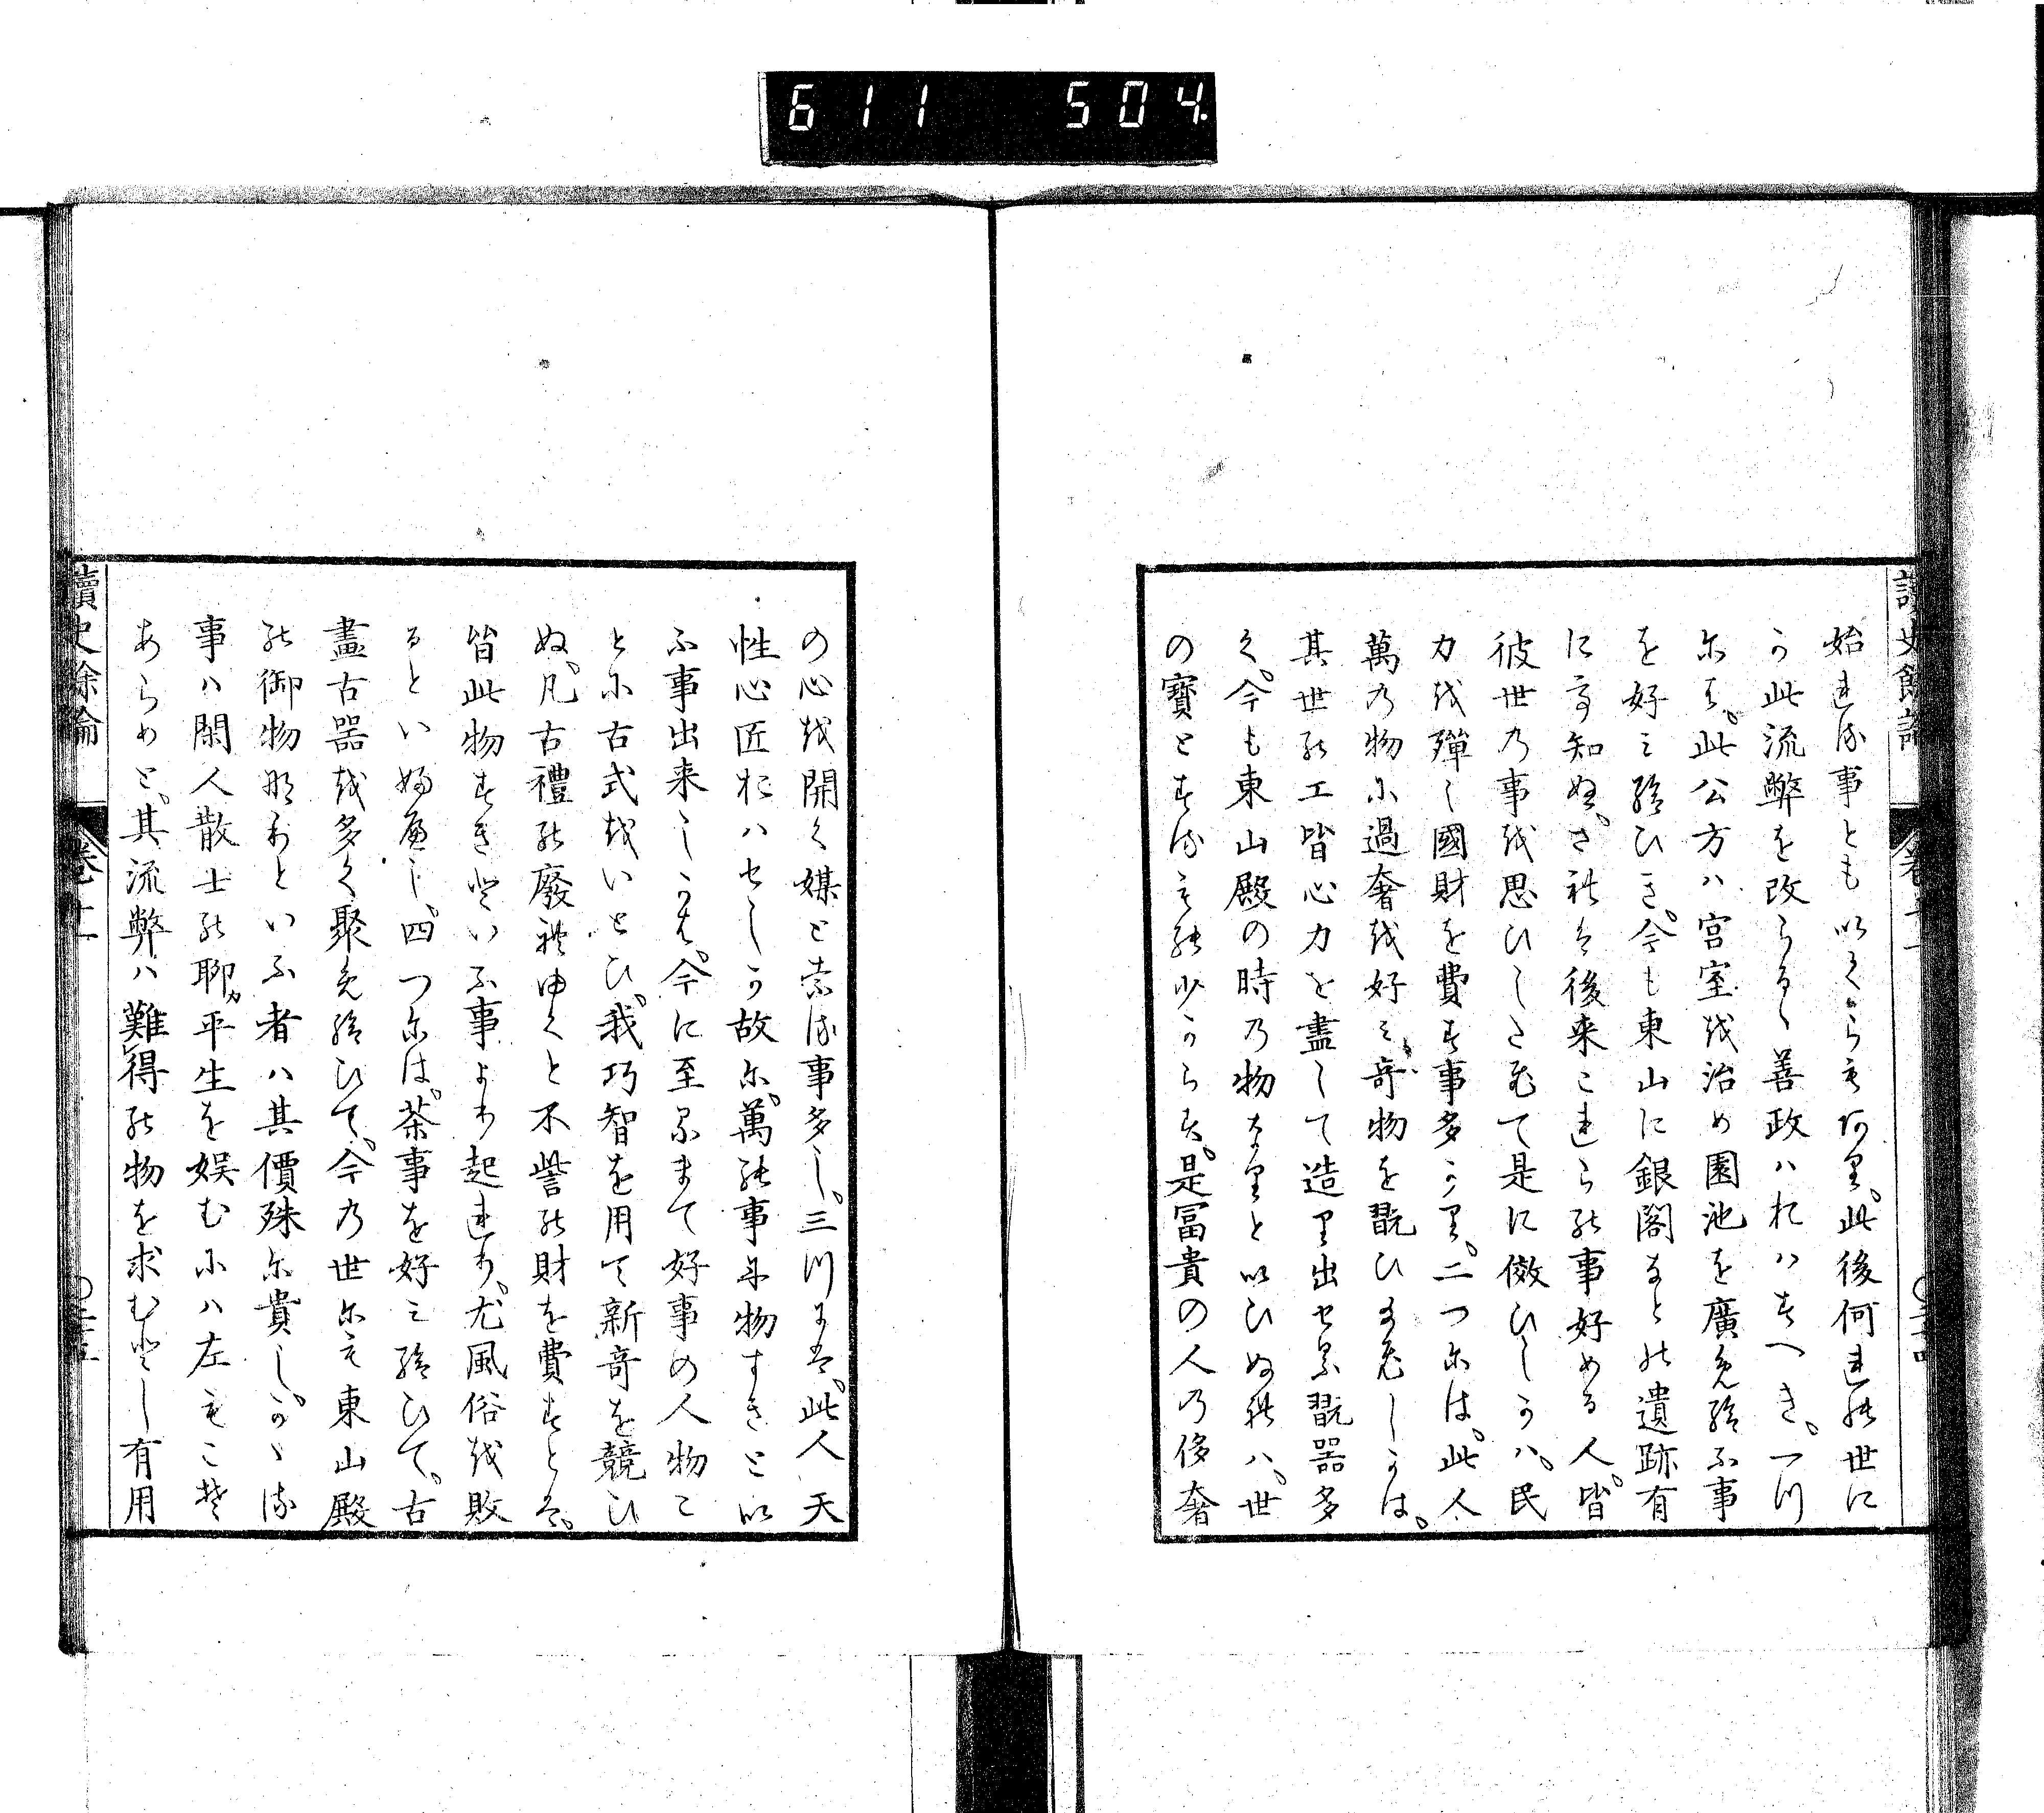 611 504
讀史餘論 卷十一
始れる事ともいくらもあり。此後何れの世に
か此流弊を改らるゝ善政はおはすへき。一つ
には。此公方ハ宮室を治め園池を廣め給ふ事
を好み給ひき。今も東山に銀閣なとの遺跡有
にて知ぬ。されは後来これらの事好める人。皆
彼世の事を思ひしたひて是に倣ひしかハ。民
力を殫し國財を費す事多かり。二つには。此人
萬の物に過奢を好み。奇物を翫ひ給ひしかは。
其世の工皆心力を盡して造り出せる翫器多
く。今も東山殿の時の物なりといひぬれハ。世
の寶とするもの少からす。是冨貴の人の侈奢
の心を開く媒となる事多し。三つには。此人天
性心匠おハせしか故に。萬の事に物すきとい
ふ事出来しかは。今に至るまて好事の人物こ
とに古式をいとひ。我巧智を用て新奇を競ひ
ぬ。凡古禮の廢れゆくと不訾の財を費すとは。
皆此物すきといふ事より起れり。尤風俗を敗
るといふへし。四つには。茶事を好み給ひて。古
畫古器を多く聚め給ひて。今の世にも東山殿
の御物なりといふ者ハ其價殊に貴し。かゝる
事ハ閑人散士の聊カ平生を娯むにハ左もこそ
あらめと。其流弊ハ難得の物を求むとし有用
讀史餘論 卷十一